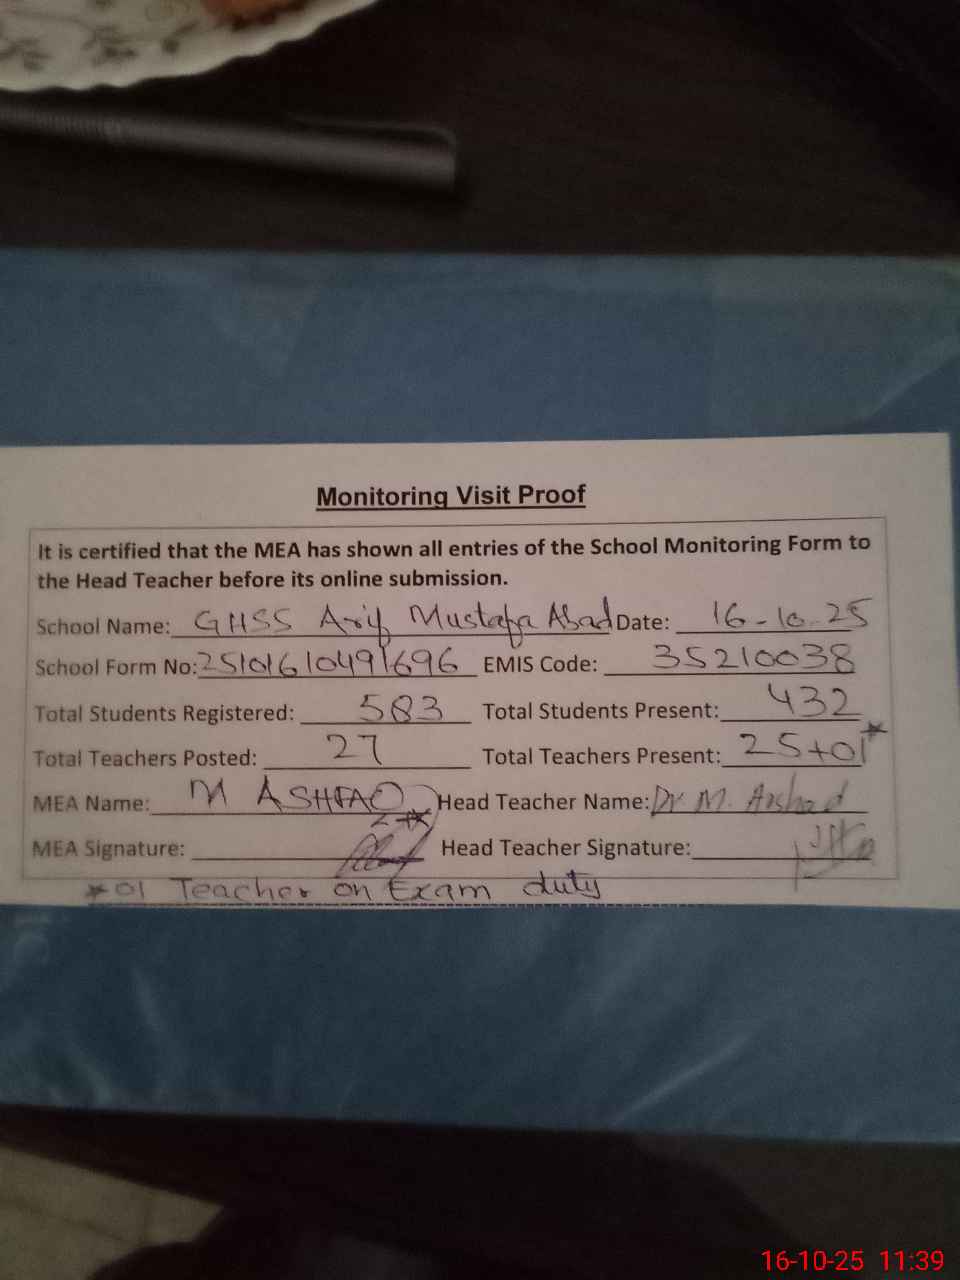 Monitoring Visit Proof
It is certified that the MEA has shown all entries of the School Monitoring Form to
the Head Teacher before its online submission.
School Name: GHSS Arif Mustafa Abad Date: 16-10-25
School Form No: 25101610491696 EMIS Code: 35210038
Total Students Registered: 583 Total Students Present: 432
Total Teachers Posted: 27 Total Teachers Present: 25+01*
MEA Name: M ASHFAQ Head Teacher Name: Dr M. Arshad
MEA Signature: Head Teacher Signature:
*01 Teacher on Exam duty
16-10-25 11:39